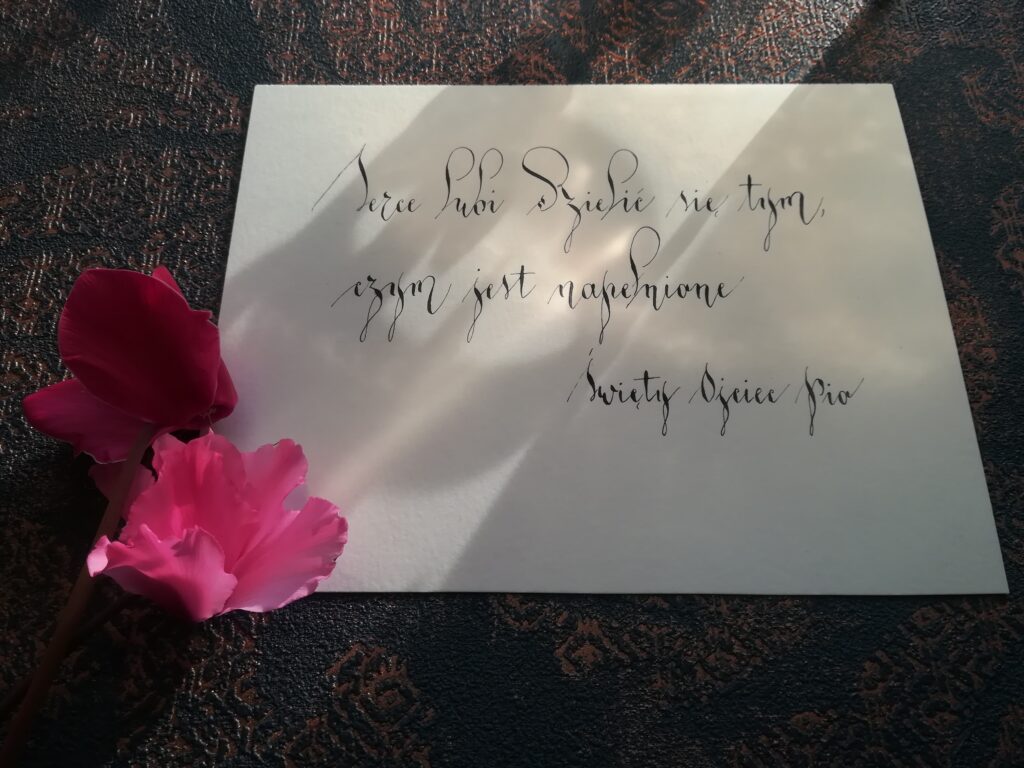 Serce lubi Dzielić się tym,
czym jest napełnione
Święty Ojciec Pio